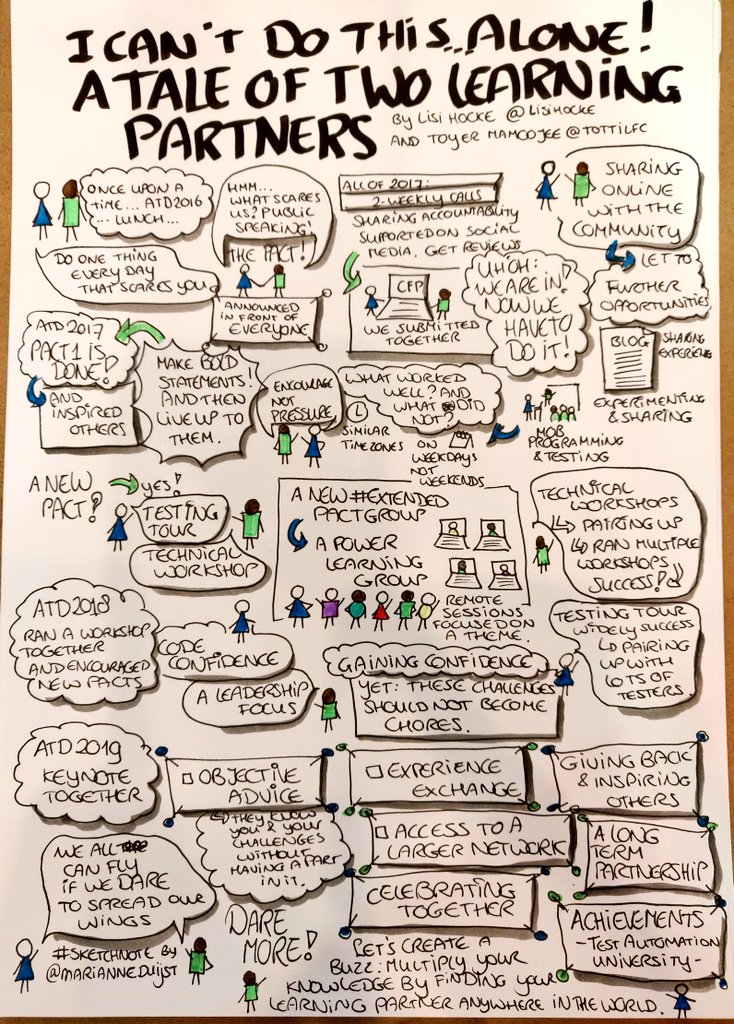 I CAN'T DO THIS...ALONE!
A TALE OF TWO LEARNING
PARTNERS
BY LISI HOCKE @LISIHOCKE
AND TOYER MAMOOJEE @TOTTILFC
ONCE UPON A
TIME... ATD2016
... LUNCH...
HMM...
WHAT SCARES
US? PUBLIC
SPEAKING!
THE PACT!
ALL OF 2017:
2-WEEKLY CALLS
SHARING ACCOUNTABILITY
SUPPORTED ON SOCIAL
MEDIA. GET REVIEWS
SHARING
ONLINE
WITH THE
COMMUNITY
DO ONE THING
EVERY DAY
THAT SCARES YOU
ANNOUNCED
IN FRONT OF
EVERYONE
CFP
WE SUBMITTED
TOGETHER
UHOH:
WE ARE IN!
NOW WE
HAVE TO
DO IT!
LET TO
FURTHER
OPPORTUNITIES
BLOG
SHARING
EXPERIENC
EXPERIMENTING
& SHARING
ATD 2017
PACT 1 IS
DONE!
AND
INSPIRED
OTHERS
MAKE BOLD
STATEMENTS!
AND THEN
LIVE UP TO
THEM.
ENCOURAGE
NOT
PRESSURE
WHAT WORKED
WELL? AND
WHAT DID
NOT?
SIMILAR
TIMEZONES
ON
WEEKDAYS
NOT
WEEKENDS
MOB
PROGRAMMING
& TESTING
A NEW
PACT?
YES!
TESTING
TOUR
TECHNICAL
WORKSHOP
A NEW #EXTENDED
PACTGROUP
A POWER
LEARNING
GROUP
REMOTE
SESSIONS
FOCUSED ON
A THEME.
TECHNICAL
WORKSHOPS
PAIRING UP
RAN MULTIPLE
WORKSHOPS
SUCCESS!
ATD 2018
RAN A WORKSHOP
TOGETHER
AND ENCOURAGED
NEW PACTS
CODE
CONFIDENCE
A LEADERSHIP
FOCUS
GAINING CONFIDENCE
YET: THESE CHALLENGES
SHOULD NOT BECOME
CHORES.
TESTING TOUR
WIDELY SUCCESS
PAIRING
UP WITH
LOTS OF
TESTERS
ATD 2019
KEYNOTE
TOGETHER
OBJECTIVE
ADVICE
THEY KNOW
YOU & YOUR
CHALLENGES
WITHOUT
HAVING A PART
IN IT.
EXPERIENCE
EXCHANGE
GIVING BACK
& INSPIRING
OTHERS
ACCESS TO A
LARGER NETWORK
A LONG
TERM
PARTNERSHIP
CELEBRATING
TOGETHER
ACHIEVEMENTS
-TEST AUTOMATION
UNIVERSITY-
WE ALL
CAN FLY
IF WE DARE
TO SPREAD OUR
WINGS
#SKETCHNOTE BY
@MARIANNEDUIJST
DARE
MORE!
LET'S CREATE A
BUZZ: MULTIPLY YOUR
KNOWLEDGE BY FINDING YOUR
LEARNING PARTNER ANYWHERE IN THE WORLD.